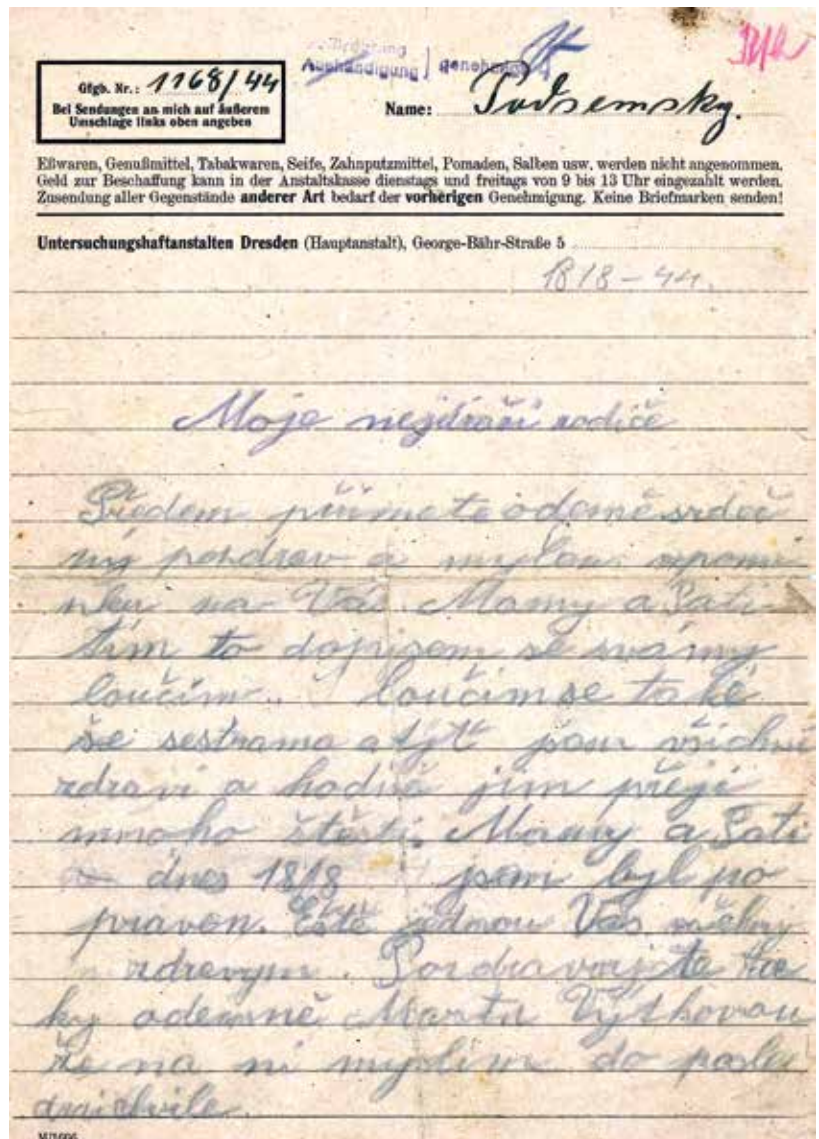 Gfgb. Nr.: 1168/44
Bei Sendungen an mich auf äußerem
Umschlage links oben angeben
Aushändigung genehmigt
Name: Podsemsky.
Eßwaren, Genußmittel, Tabakwaren, Seife, Zahnputzmittel, Pomaden, Salben usw. werden nicht angenommen.
Geld zur Beschaffung kann in der Anstaltskasse dienstags und freitags von 9 bis 13 Uhr eingezahlt werden.
Zusendung aller Gegenstände anderer Art bedarf der vorherigen Genehmigung. Keine Briefmarken senden!
Untersuchungshaftanstalten Dresden (Hauptanstalt), George-Bähr-Straße 5
18/8-44.
Moje nejdraží rodiče
Předem přímete odemě srdeč
ný pozdrav a mylou vpomí
nku na Vás. Mamy a Tati
tím to dopisem se svámy
loučím. loučím se také
se sestrama a jsou všichni
zdraví a hodně jim přeji
mnoho štěstí. Mamy a Tati
dnes 18/8 jsem byl po
praven. Eště jednou Vás
zdravym. Pozdravujte tae
ky odemně Martu Výthovou
že na ni myslim do posle
dni chvile.